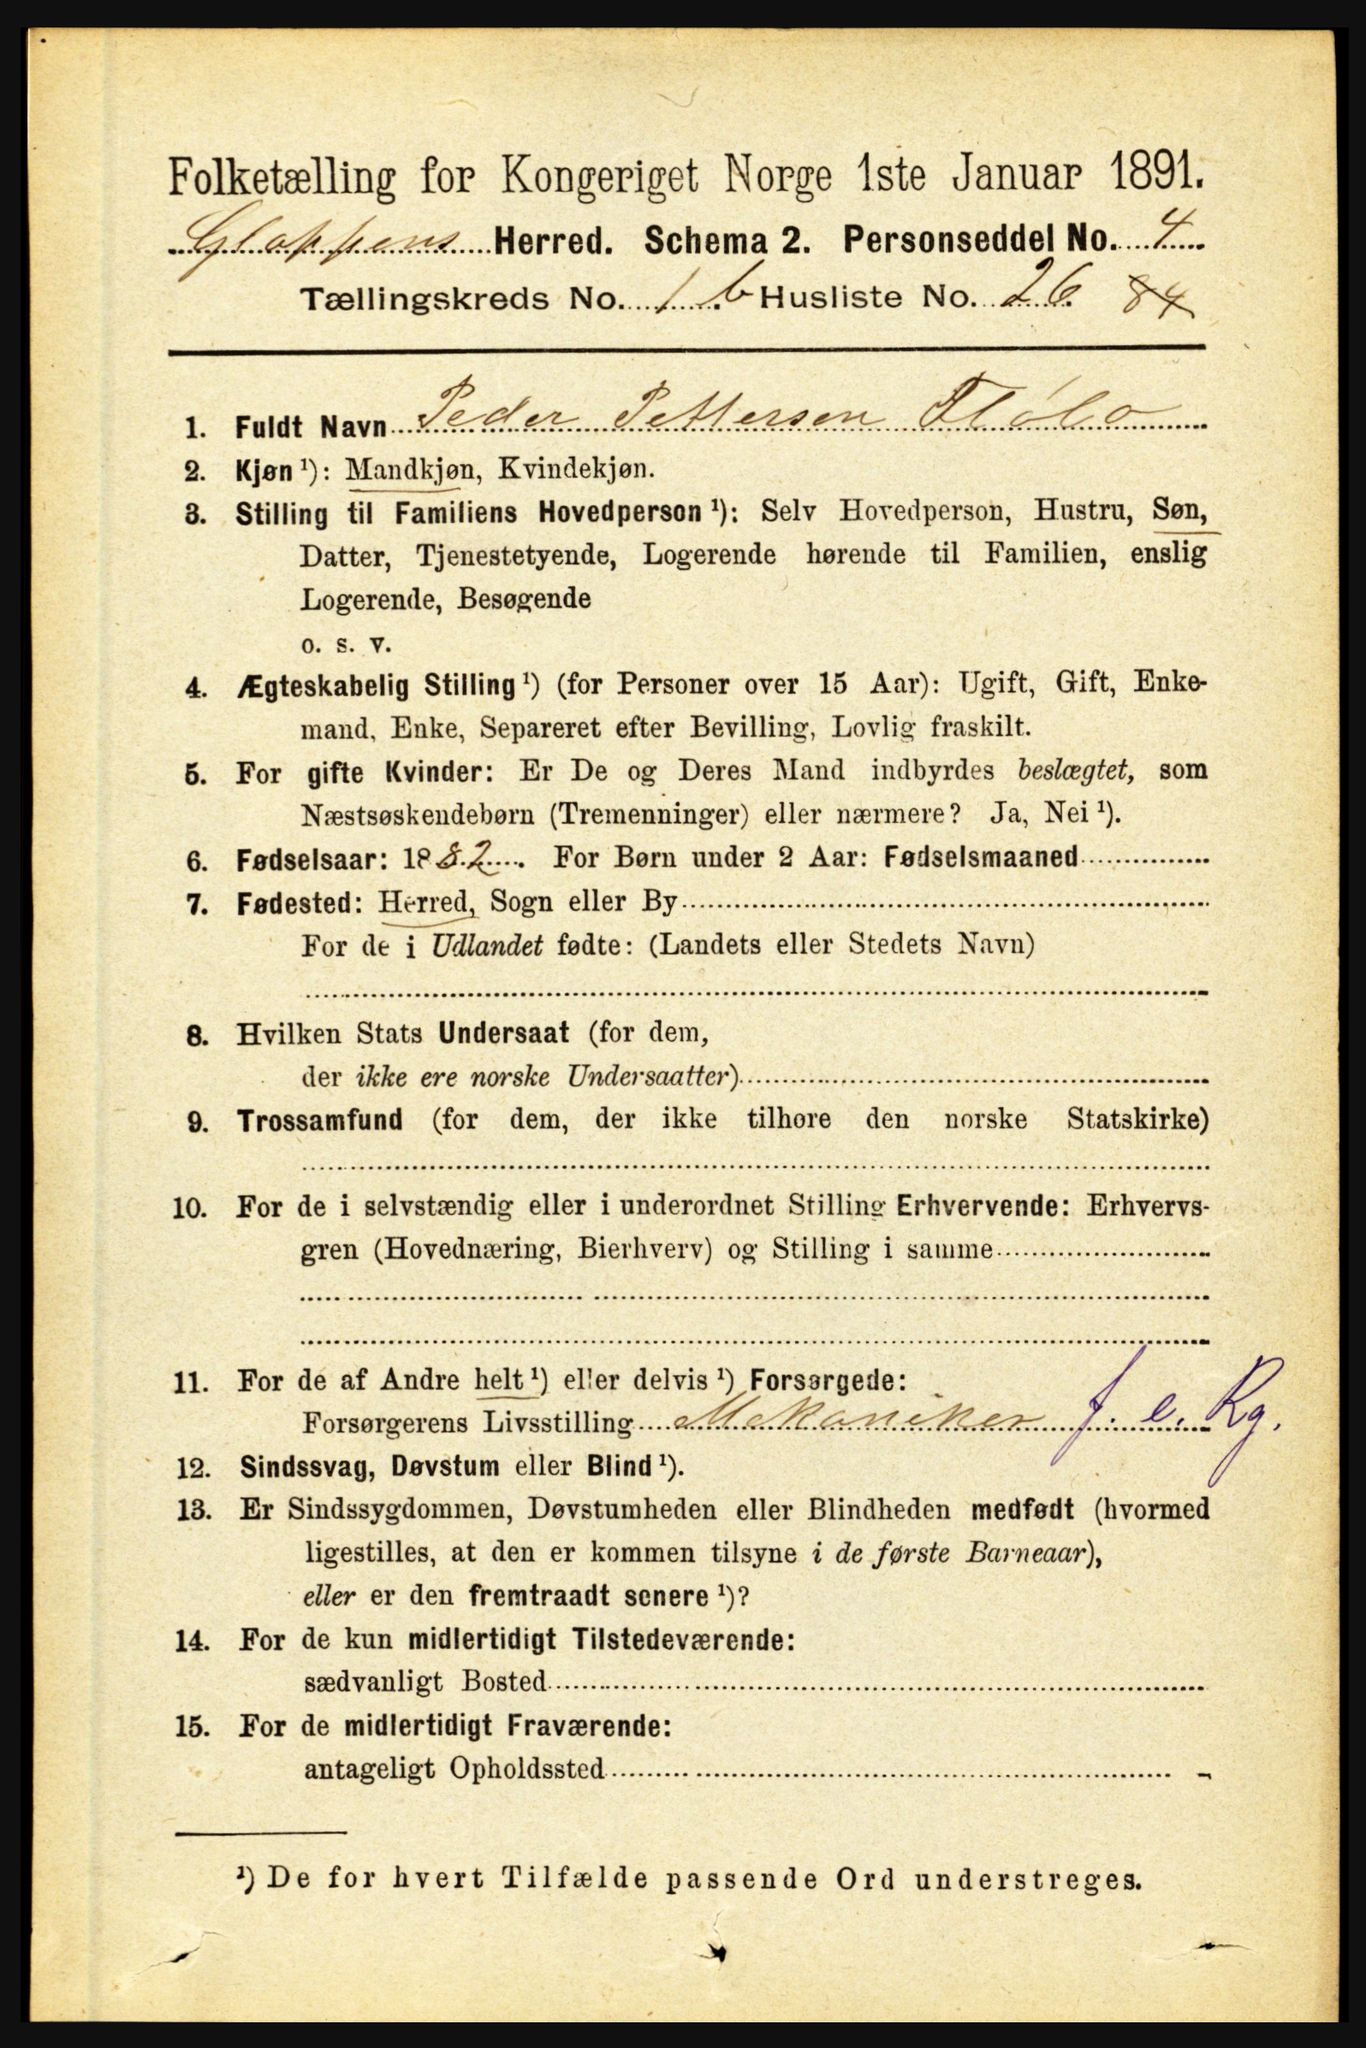 Folketælling for Kongeriget Norge 1ste Januar 1891.
Gloppens Herred. Schema 2. Personseddel No. 4
Tællingskreds No. 1 b Husliste No. 26 84
1. Fuldt Navn Peder Pettersen Fløbo
2. Kjøn ¹): Mandkjøn, Kvindekjøn.
3. Stilling til Familiens Hovedperson ¹): Selv Hovedperson, Hustru, Søn,
Datter, Tjenestetyende, Logerende hørende til Familien, enslig
Logerende, Besøgende
o. s. v.
4. Ægteskabelig Stilling ¹) (for Personer over 15 Aar): Ugift, Gift, Enke-
mand, Enke, Separeret efter Bevilling, Lovlig fraskilt.
5. For gifte Kvinder: Er De og Deres Mand indbyrdes beslægtet, som
Næstsøskendebørn (Tremenninger) eller nærmere? Ja, Nei ¹).
6. Fødselsaar: 1882. For Børn under 2 Aar: Fødselsmaaned
7. Fødested: Herred, Sogn eller By
For de i Udlandet fødte: (Landets eller Stedets Navn)
8. Hvilken Stats Undersaat (for dem,
der ikke ere norske Undersaatter)
9. Trossamfund (for dem, der ikke tilhøre den norske Statskirke)
10. For de i selvstændig eller i underordnet Stilling Erhvervende: Erhvervs-
gren (Hovednæring, Bierhverv) og Stilling i samme
11. For de af Andre helt ¹) eller delvis ¹) Forsørgede:
Forsørgerens Livsstilling Mekaniker f. e. Rg.
12. Sindssvag, Døvstum eller Blind ¹).
13. Er Sindssygdommen, Døvstumheden eller Blindheden medfødt (hvormed
ligestilles, at den er kommen tilsyne i de første Barneaar),
eller er den fremtraadt senere ¹)?
14. For de kun midlertidigt Tilstedeværende:
sædvanligt Bosted
15. For de midlertidigt Fraværende:
antageligt Opholdssted
¹) De for hvert Tilfælde passende Ord understreges.